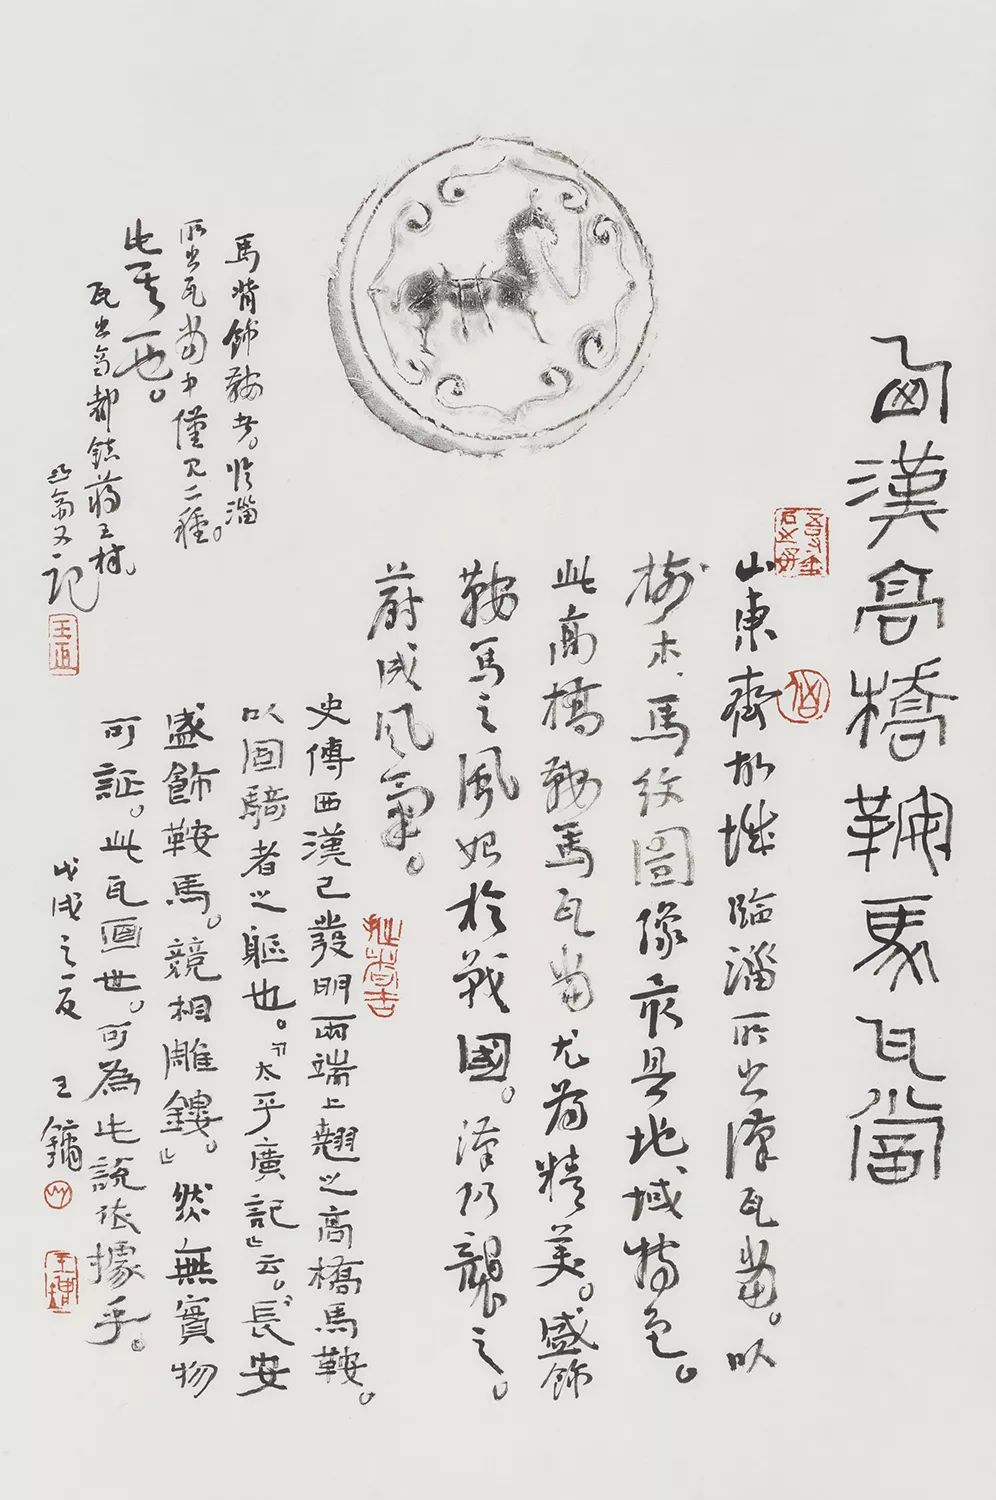 西漢高橋鞍馬瓦當
山東齊故城臨淄所出漢瓦當。以
樹木、馬紋圖像最具地域特色。
此高橋鞍馬瓦當尤為精美。盛飾
鞍馬之風始於戰國。漢仍襲之。
蔚成風氣。
史傳西漢已發明兩端上翹之高橋馬鞍。
以固騎者之軀也。『太平廣記』云。「長安
盛飾鞍馬。競相雕鏤。」然無實物
可証。此瓦面世。可為此說依據乎。
戊戌之夏 王鏞
馬背飾鞍者。臨淄
所出瓦當中僅見二種。
此其一也。
瓦出齊都鎮蔣王村。
鼎帚又記